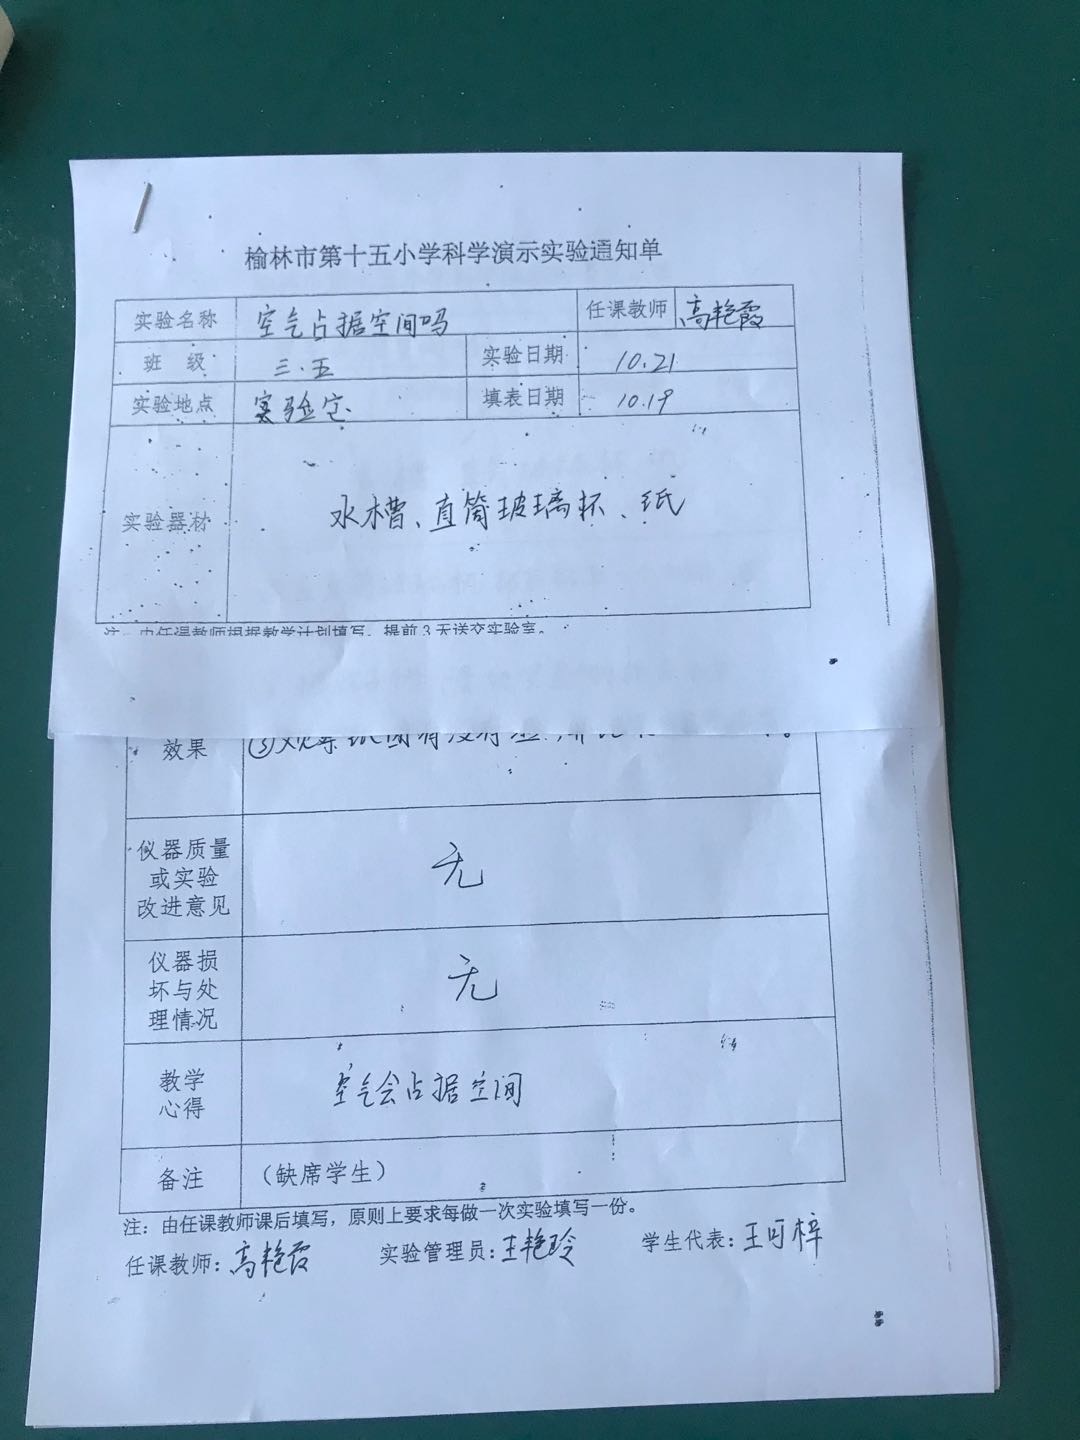 榆林市第十五小学科学演示实验通知单
实验名称 空气占据空间吗 任课教师 高艳霞
班 级 三.五 实验日期 10.21
实验地点 实验室 填表日期 10.19
实验器材 水槽、直筒玻璃杯、纸
注：由任课教师根据教学计划填写，提前3天送交实验室。
效果
仪器质量
或实验
改进意见
无
仪器损
坏与处
理情况
无
教学
心得
空气会占据空间
备注 （缺席学生）
注：由任课教师课后填写，原则上要求每做一次实验填写一份。
任课教师：高艳霞 实验管理员：王艳玲 学生代表：王可梓